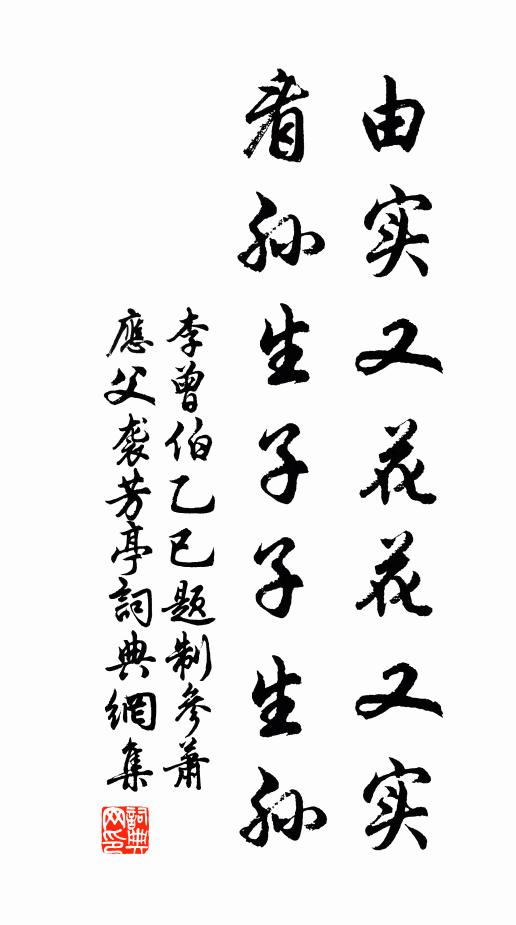 由实又花花又实
看孙生子子生孙
李曾伯乙巳题制参萧
應父袭芳亭詞典網集
詞典
网印